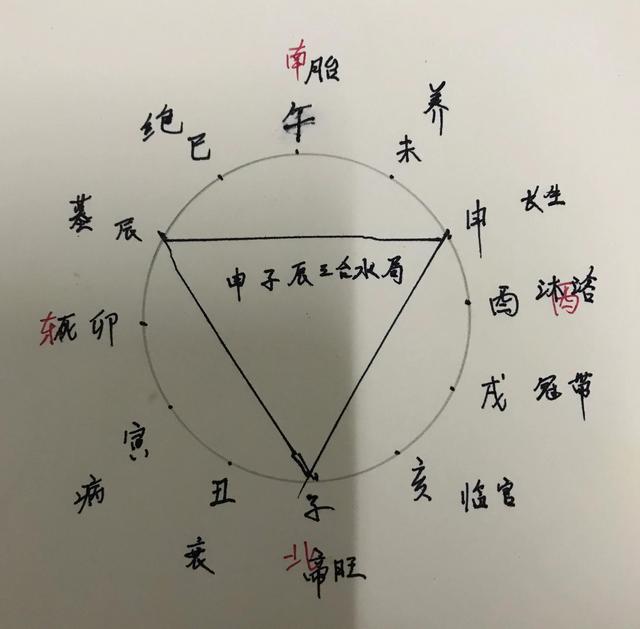 南 胎
午
养
未
绝
巳
墓
辰
申 长生
申子辰三合水局
酉 沐浴
西
东
死 卯
戌 冠带
寅
病
亥 临官
丑
衰
子
北 帝旺